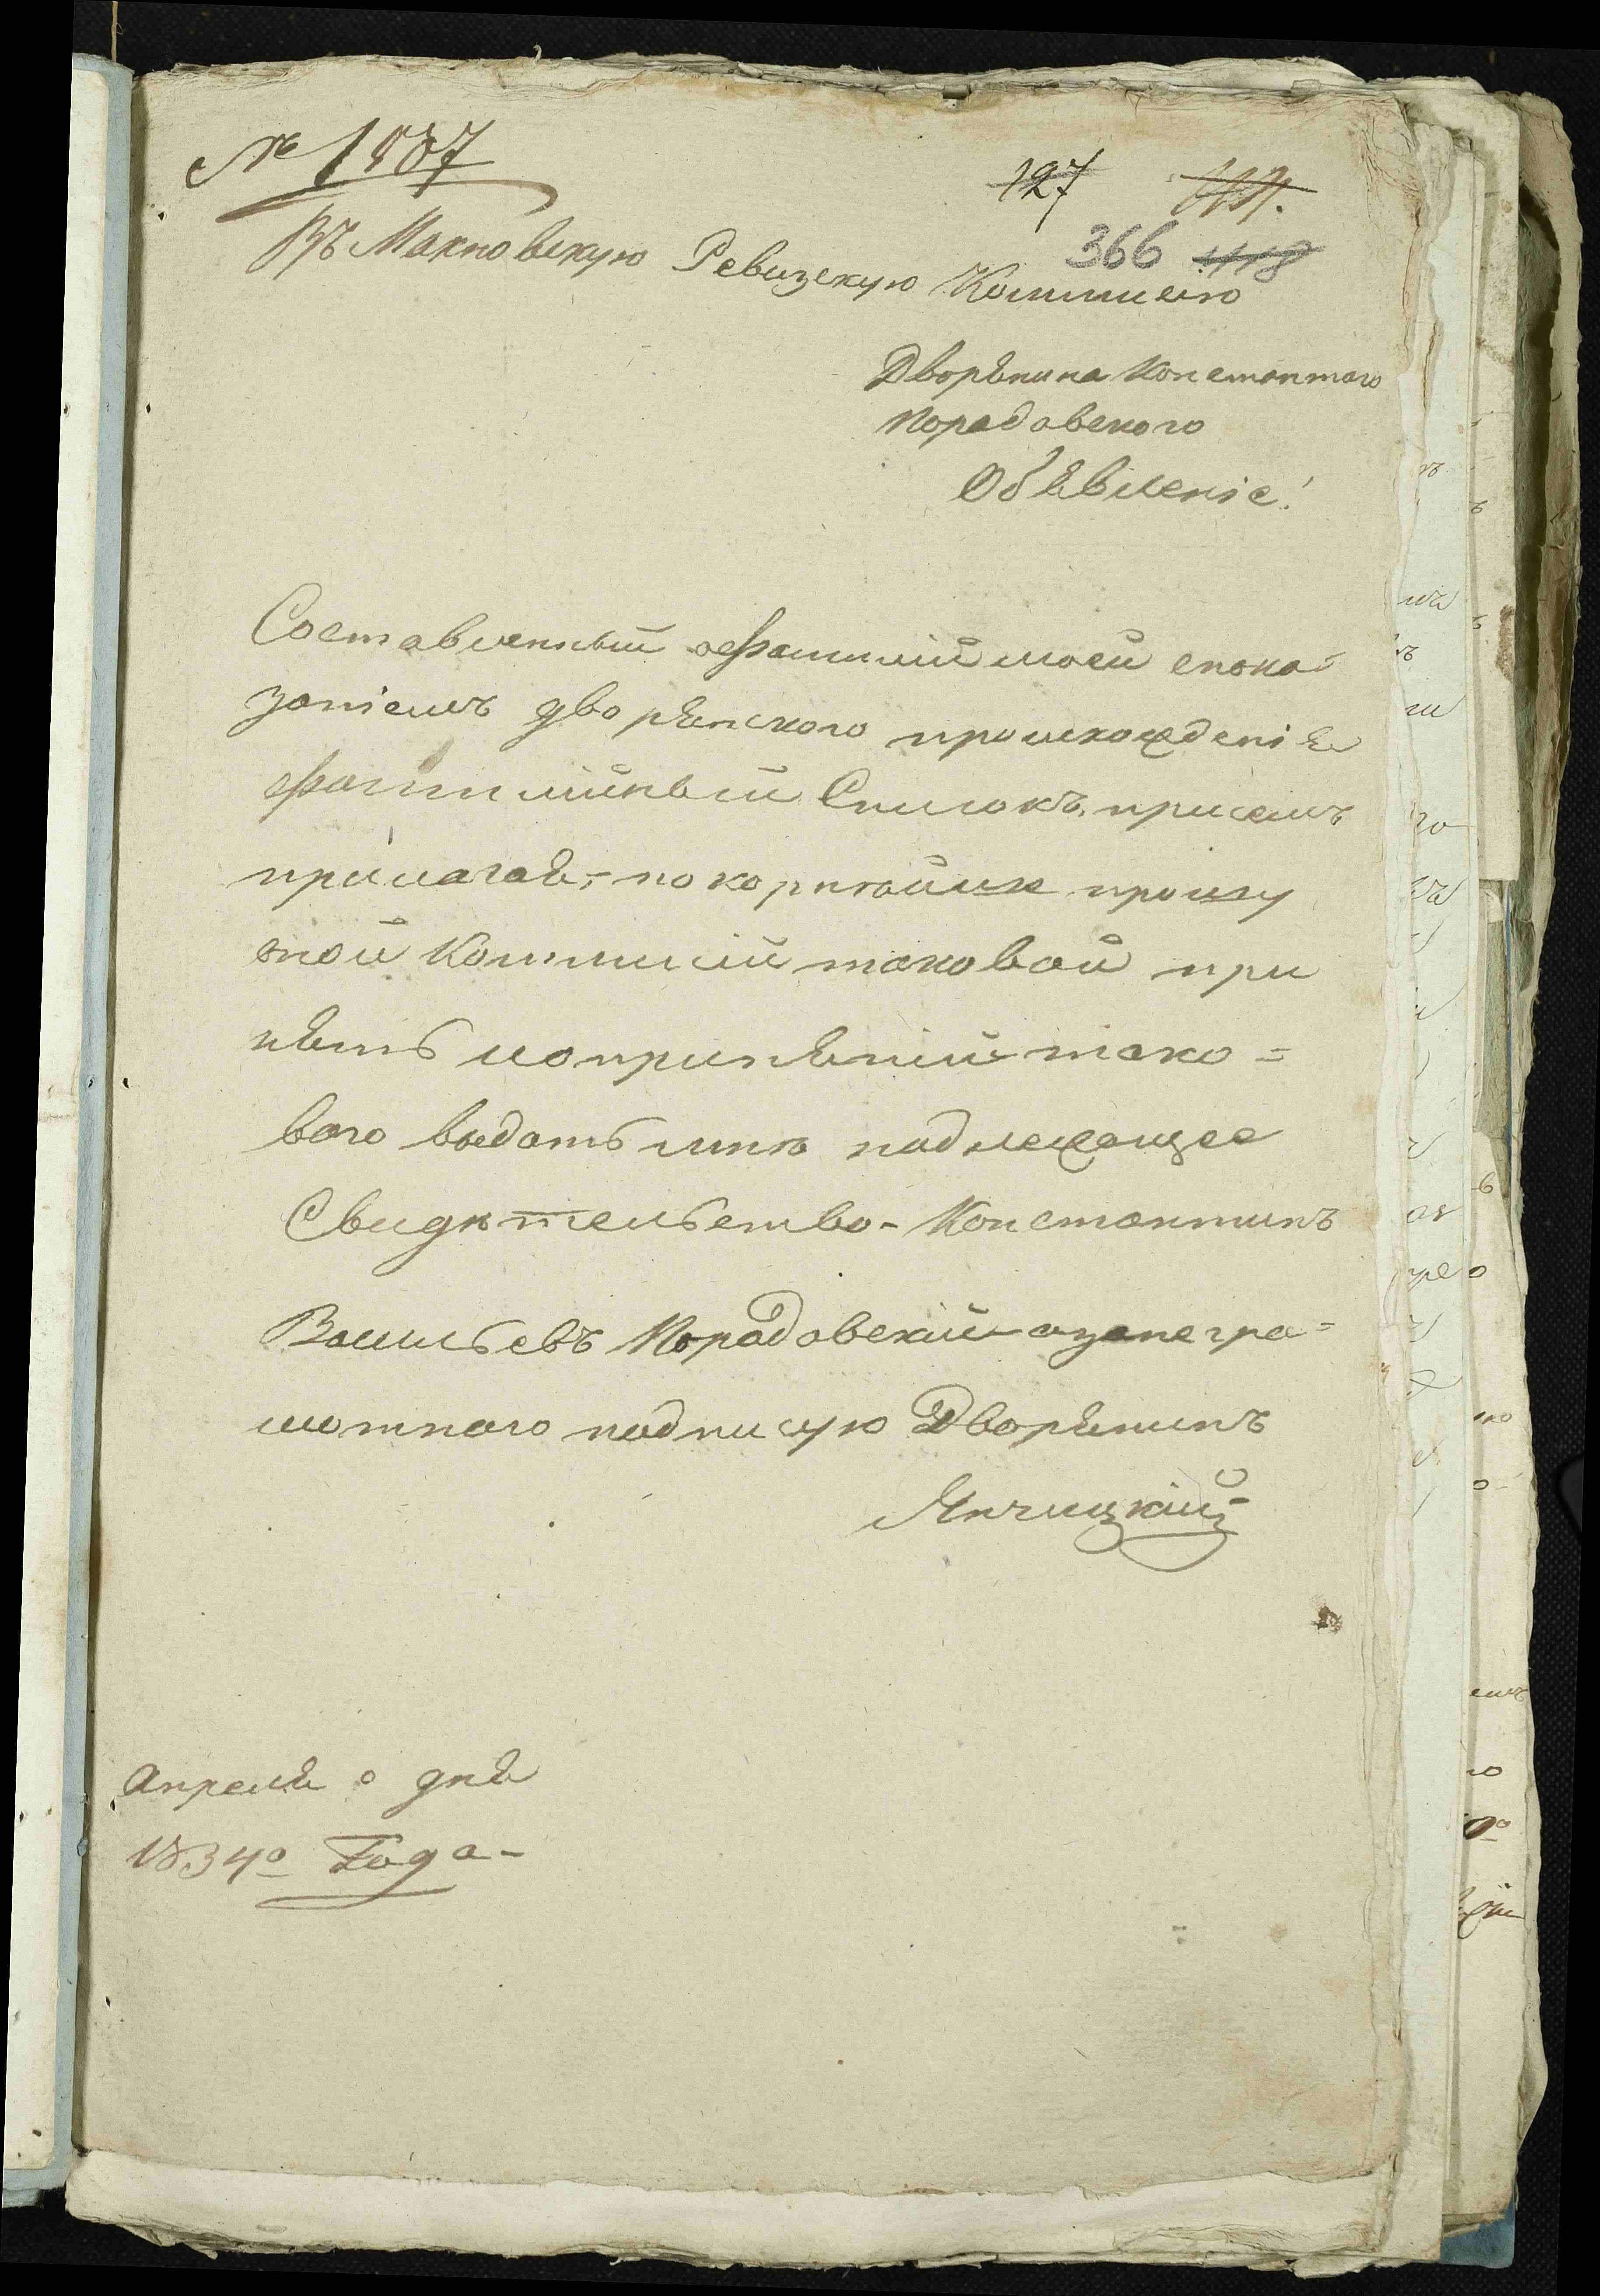 № 1887
127
366 418
Въ Махновскую Ревизскую Коммисию
Дворянина Константого
Порадовского
Объявленіе!
Составленный оФамилій моей спока-
заніемъ дворянского происхожденія
Фамилійный Списокъ, присемъ
прилагая,- покорнѣйше прошу
оной Коммисій таковой при
нять ипопринятій тако=
вого выдать мнѣ надлежащее
Свидѣтельство- Константинъ
Васильевъ Порадовскій азанегра=
мотного подписую Дворянинъ
Янчицкій
Апреля дня
1834го Года-